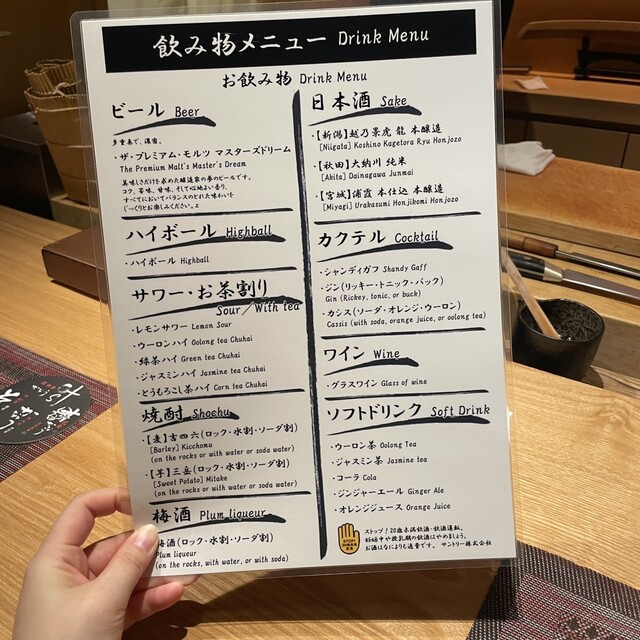 飲み物メニュー Drink Menu
お飲み物 Drink Menu
ビール Beer
多重奏で、濃密。
・ザ・プレミアム・モルツ マスターズドリーム
The Premium Malt's Master's Dream
美味しさだけを求めた醸造家の夢のビールです。
コク、苦味、甘味、そして心地よい香り。
すべてにおいてバランスのとれた味わいを
じっくりとお楽しみください。
ハイボール Highball
・ハイボール Highball
サワー・お茶割り
Sour／With tea
・レモンサワー Lemon Sour
・ウーロンハイ Oolong tea Chuhai
・緑茶ハイ Green tea Chuhai
・ジャスミンハイ Jasmine tea Chuhai
・とうもろこし茶ハイ Corn tea Chuhai
焼酎 Shochu
・【麦】吉四六(ロック・水割・ソーダ割)
[Barley] Kicchomu
(on the rocks or with water or soda water)
・【芋】三岳(ロック・水割・ソーダ割)
[Sweet Potato] Mitake
(on the rocks or with water or soda water)
梅酒 Plum liqueur
梅酒(ロック・水割・ソーダ割)
Plum liqueur
(on the rocks, with water, or with soda)
日本酒 Sake
・【新潟】越乃景虎 龍 本醸造
[Niigata] Koshino Kagetora Ryu Honjozo
・【秋田】大納川 純米
[Akita] Dainagawa Junmai
・【宮城】浦霞 本仕込 本醸造
[Miyagi] Urakasumi Honjikomi Honjozo
カクテル Cocktail
・シャンディガフ Shandy Gaff
・ジン(リッキー・トニック・バック)
Gin (Rickey, tonic, or buck)
・カシス(ソーダ・オレンジ・ウーロン)
Cassis (with soda, orange juice, or oolong tea)
ワイン Wine
・グラスワイン Glass of wine
ソフトドリンク Soft Drink
・ウーロン茶 Oolong Tea
・ジャスミン茶 Jasmine tea
・コーラ Cola
・ジンジャーエール Ginger Ale
・オレンジジュース Orange Juice
ストップ！20歳未満飲酒・飲酒運転。
妊娠中や授乳期の飲酒はやめましょう。
お酒はなによりも適量です。 サントリー株式会社